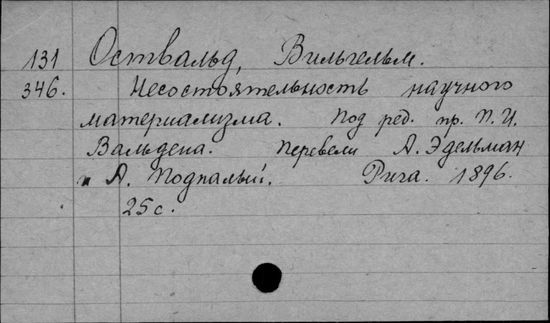 131 Оствальд, Вильгельм.
346. Несостоятельность научного
материализма. Под ред. пр. П. И.
Вальдена. Перевели А. Эдельман
и А. Подпалый. Рига. 1896.
25 с.